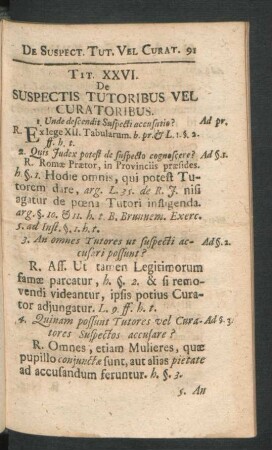 DE SUSPECT. TUT. VEL CURAT. 91
TIT. XXVI.
De
SUSPECTIS TUTORIBUS VEL
CURATORIBUS.
1. Unde descendit Suspecti accusatio? Ad pr.
R. Ex lege XII. Tabularum. h. pr. & L. 1. §. 2.
ff. h. t.
2. Quis Judex potest de suspecto cognoscere? Ad §. 1.
R. Romæ Prætor, in Provinciis præsides.
h. §. 1. Hodie omnis, qui potest Tu-
torem dare, arg. L. 35. de R. J. nisi
agatur de pœna Tutori infligenda.
arg. §. 10. & 11. h. t. B. Brunnem. Exerc.
5. ad Inst. §. 1. h. t.
3. An omnes Tutores ut suspecti ac- Ad §. 2.
cusari possunt?
R. Aff. Ut tamen Legitimorum
famæ parcatur, h. §. 2. & si remo-
vendi videantur, ipsis potius Cura-
tor adjungatur. L. 9. ff. h. t.
4. Quinam possunt Tutores vel Cura- Ad §. 3.
tores Suspectos accusare?
R. Omnes, etiam Mulieres, quæ
pupillo conjunctæ sunt, aut alias pietate
ad accusandum feruntur. h. §. 3.
5. An